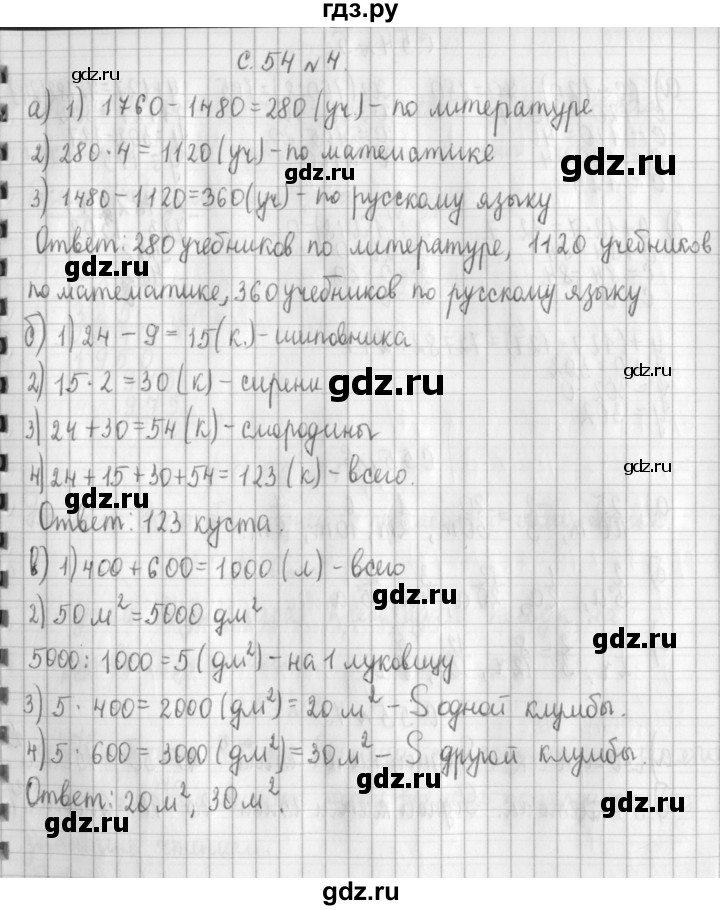 гдз.ру
с. 54 № 4.
gdz.ru
а) 1) 1760 - 1480 = 280 (уч) - по литературе
2) 280 · 4 = 1120 (уч) - по математике
gdz.ru
gdz.ru
3) 1480 - 1120 = 360 (уч) - по русскому языку
Ответ: 280 учебников по литературе, 1120 учебников
gdz.ru
по математике, 360 учебников по русскому языку
б) 1) 24 - 9 = 15 (к.) - шиповника
gdz.ru
2) 15 · 2 = 30 (к) - сирени
gdz.ru
3) 24 + 30 = 54 (к) - смородины
gdz.ru
4) 24 + 15 + 30 + 54 = 123 (к) - всего.
gdz.ru
Ответ: 123 куста.
в) 1) 400 + 600 = 1000 (л) - всего
gdz.ru
2) 50 м² = 5000 дм²
gdz.ru
5000 : 1000 = 5 (дм²) - на 1 луковицу
3) 5 · 400 = 2000 (дм²) = 20 м² - S одной клумбы.
4) 5 · 600 = 3000 (дм²) = 30 м² - S другой клумбы.
Ответ: 20 м², 30 м²
gdz.ru
gdz.ru
gdz.ru